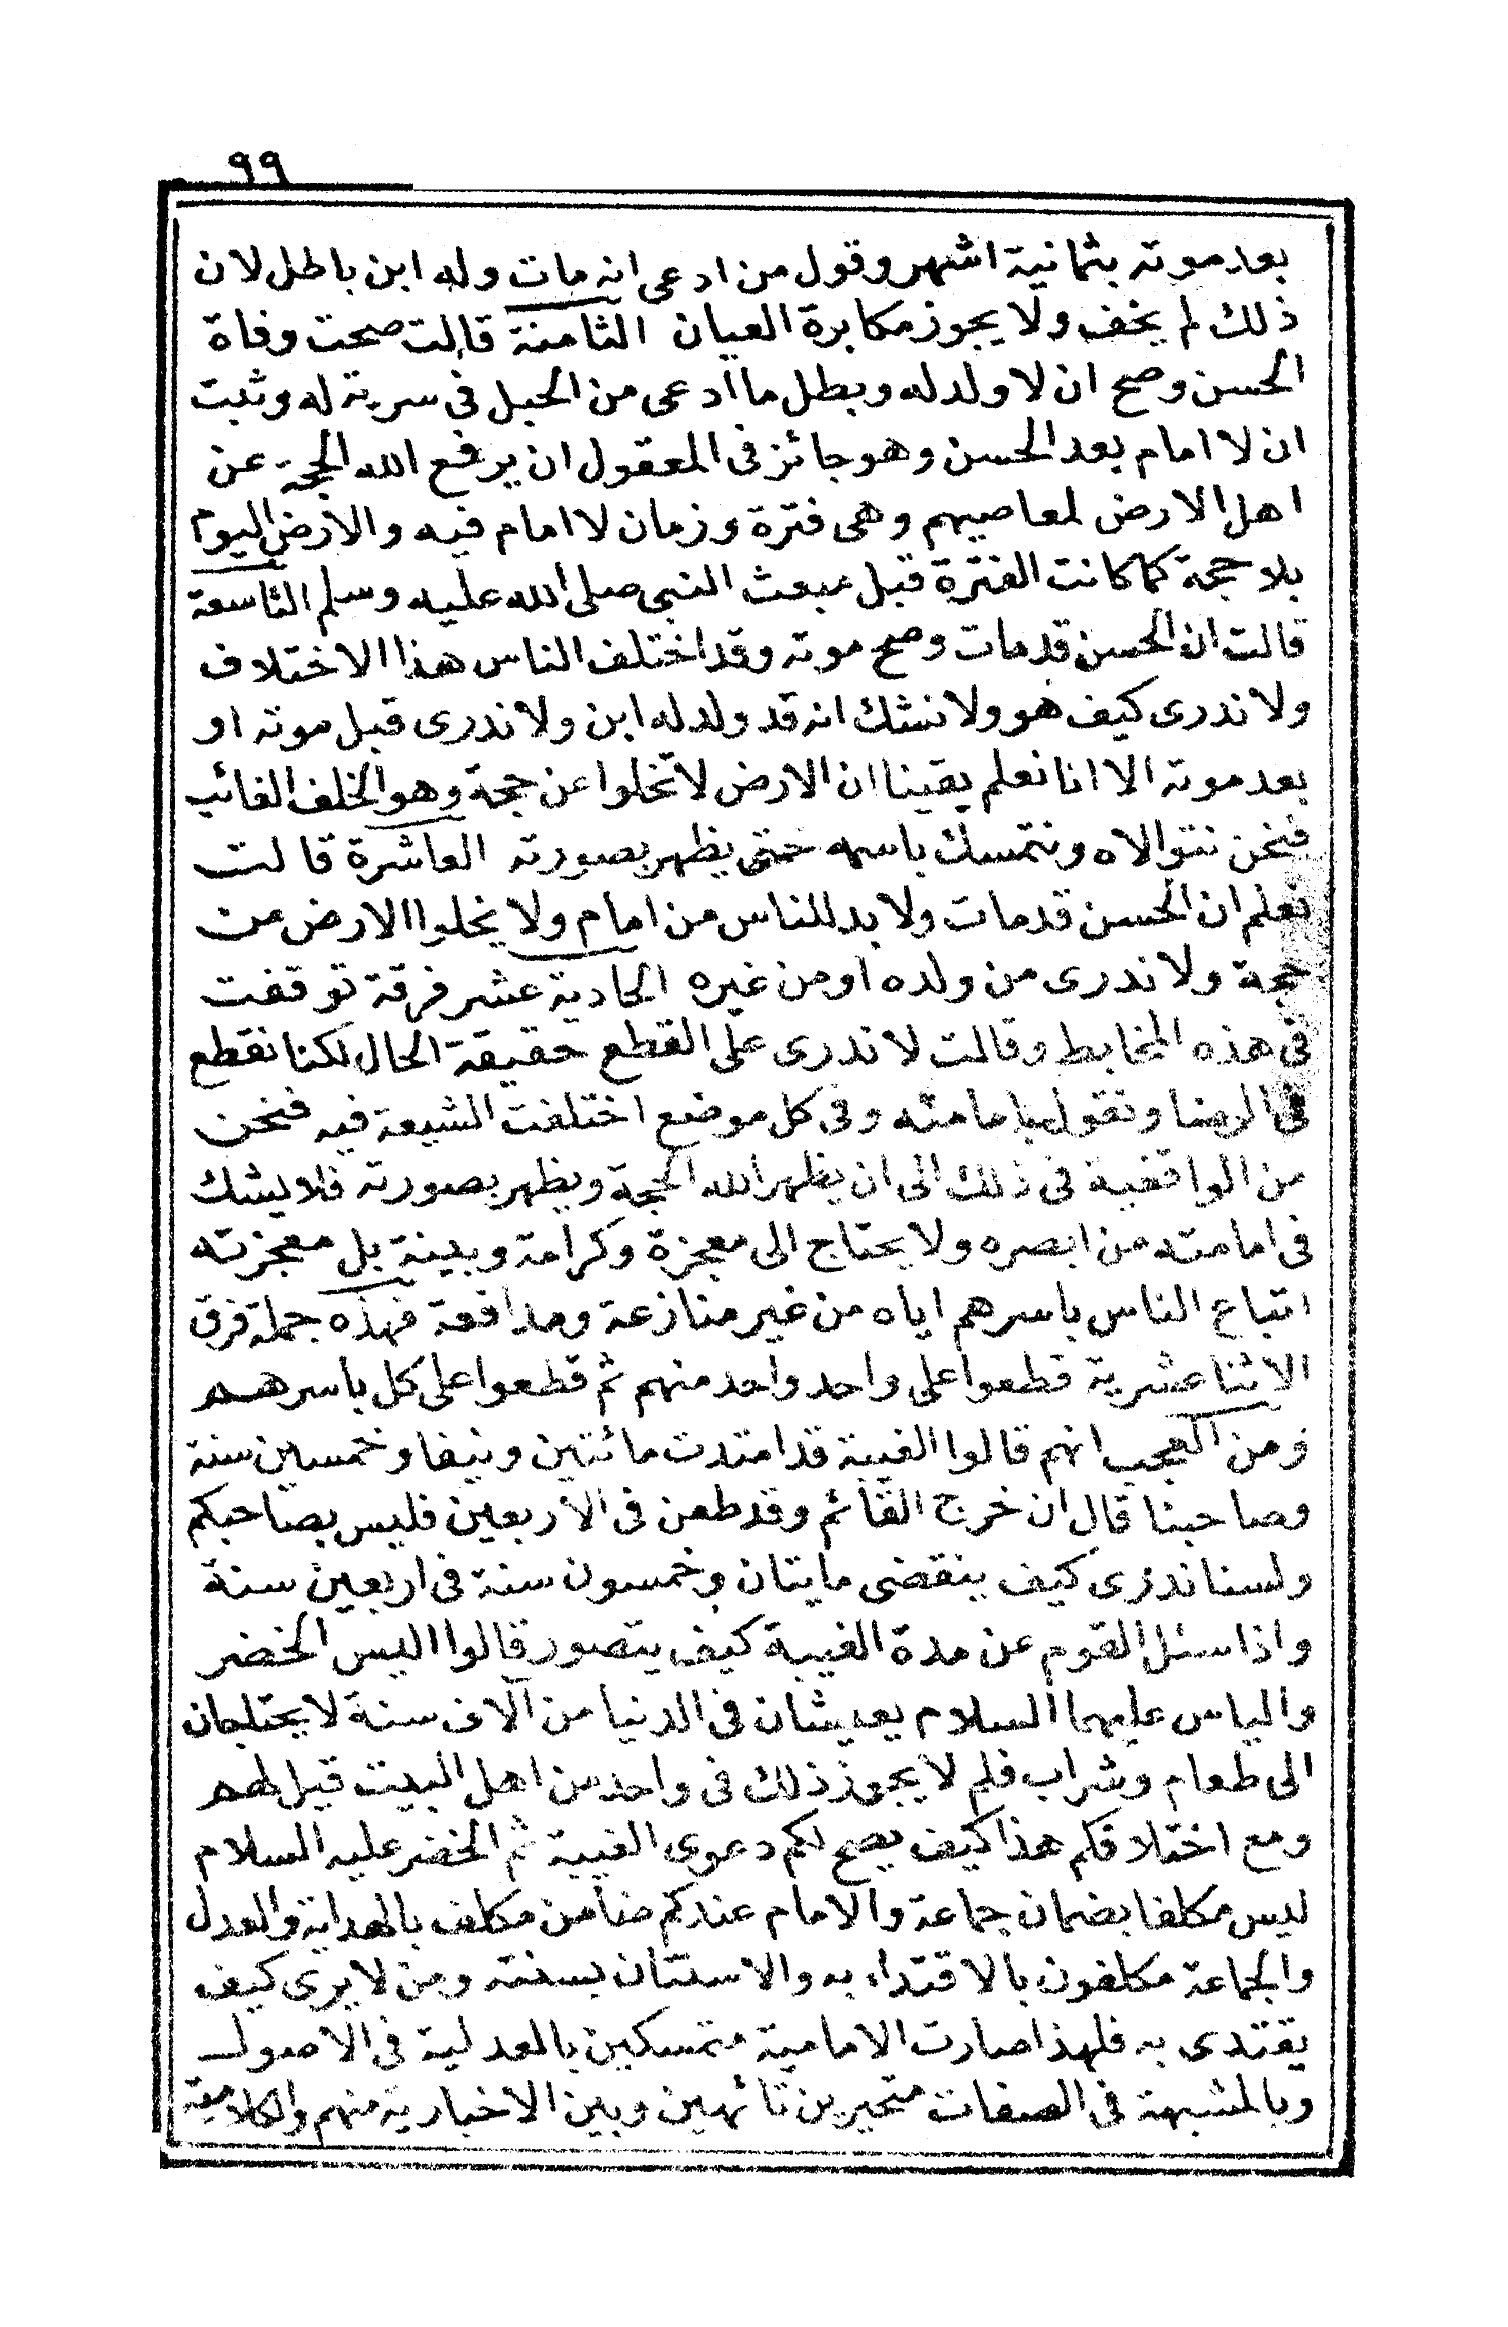 ٩٩
بعد موته بثمانية اشهر وقول من ادعى انه مات وله ابن باطل لان
ذلك لم يخف ولا يجوز مكابرة العيان الثامنة قالت صحت وفاة
الحسن وصح ان لا ولد له وبطل ما ادعى من الحبل فى سرية له وثبت
ان لا امام بعد الحسن وهو جائز فى المعقول ان يرفع الله الحجة عن
اهل الارض لمعاصيهم وهى فترة وزمان لا امام فيه والارض اليوم
بلا حجة كما كانت الفترة قبل مبعث النبى صلى الله عليه وسلم التاسعة
قالت ان الحسن قد مات وصح موته وقد اختلف الناس هذا الاختلاف
ولا ندرى كيف هو ولا نشك انه قد ولد له ابن ولا ندرى قبل موته او
بعد موته الا انا نعلم يقينا ان الارض لا تخلوا عن حجة وهو الخلف الغائب
فنحن نتوالاه ونتمسك باسمه حتى يظهر بصورته العاشرة قالت
نعلم ان الحسن قد مات ولا بد للناس من امام ولا يخلوا الارض من
حجة ولا ندرى من ولده او من غيره الحادية عشر فرقة توقفت
فى هذه المخابط وقالت لا ندرى على القطع حقيقة الحال لكنا نقطع
فى الرضا ونقول بامامته وفى كل موضع اختلفت الشيعة فيه فنحن
من الواقفية فى ذلك الى ان يظهر الله الحجة ويظهر بصورته فلا يشك
فى امامته من ابصره ولا يحتاج الى معجزة وكرامة وبينة بل معجزته
اتباع الناس باسرهم اياه من غير منازعة ومدافعة فهذه جملة فرق
الاثنا عشرية قطعوا على واحد واحد منهم ثم قطعوا على كل باسرهم
ومن العجب انهم قالوا الغيبة قد امتدت مائتين ونيفا وخمسين سنة
وصاحبنا قال ان خرج القائم وقد طعن فى الاربعين فليس بصاحبكم
ولسنا ندرى كيف ينقضى مايتان وخمسون سنة فى اربعين سنة
واذا سئل القوم عن مدة الغيبة كيف يتصور قالوا اليس الخضر
والياس عليهما السلام يعيشان فى الدنيا من آلاف سنة لا يحتاجان
الى طعام وشراب فلم لا يجوز ذلك فى واحد من اهل البيت قيل لهم
ومع اختلافكم هذا كيف يصح لكم دعوى الغيبة ثم الخضر عليه السلام
ليس مكلفا بضمان جماعة والامام عندكم ضامن مكلف بالهداية والعدل
والجماعة مكلفون بالاقتداء به والاستنان بسنته ومن لا يرى كيف
يقتدى به فلهذا صارت الامامية متمسكين بالعدلية فى الاصول
وبالمشبهة فى الصفات متحيرين تائهين وبين الاخبارية منهم والكلامية